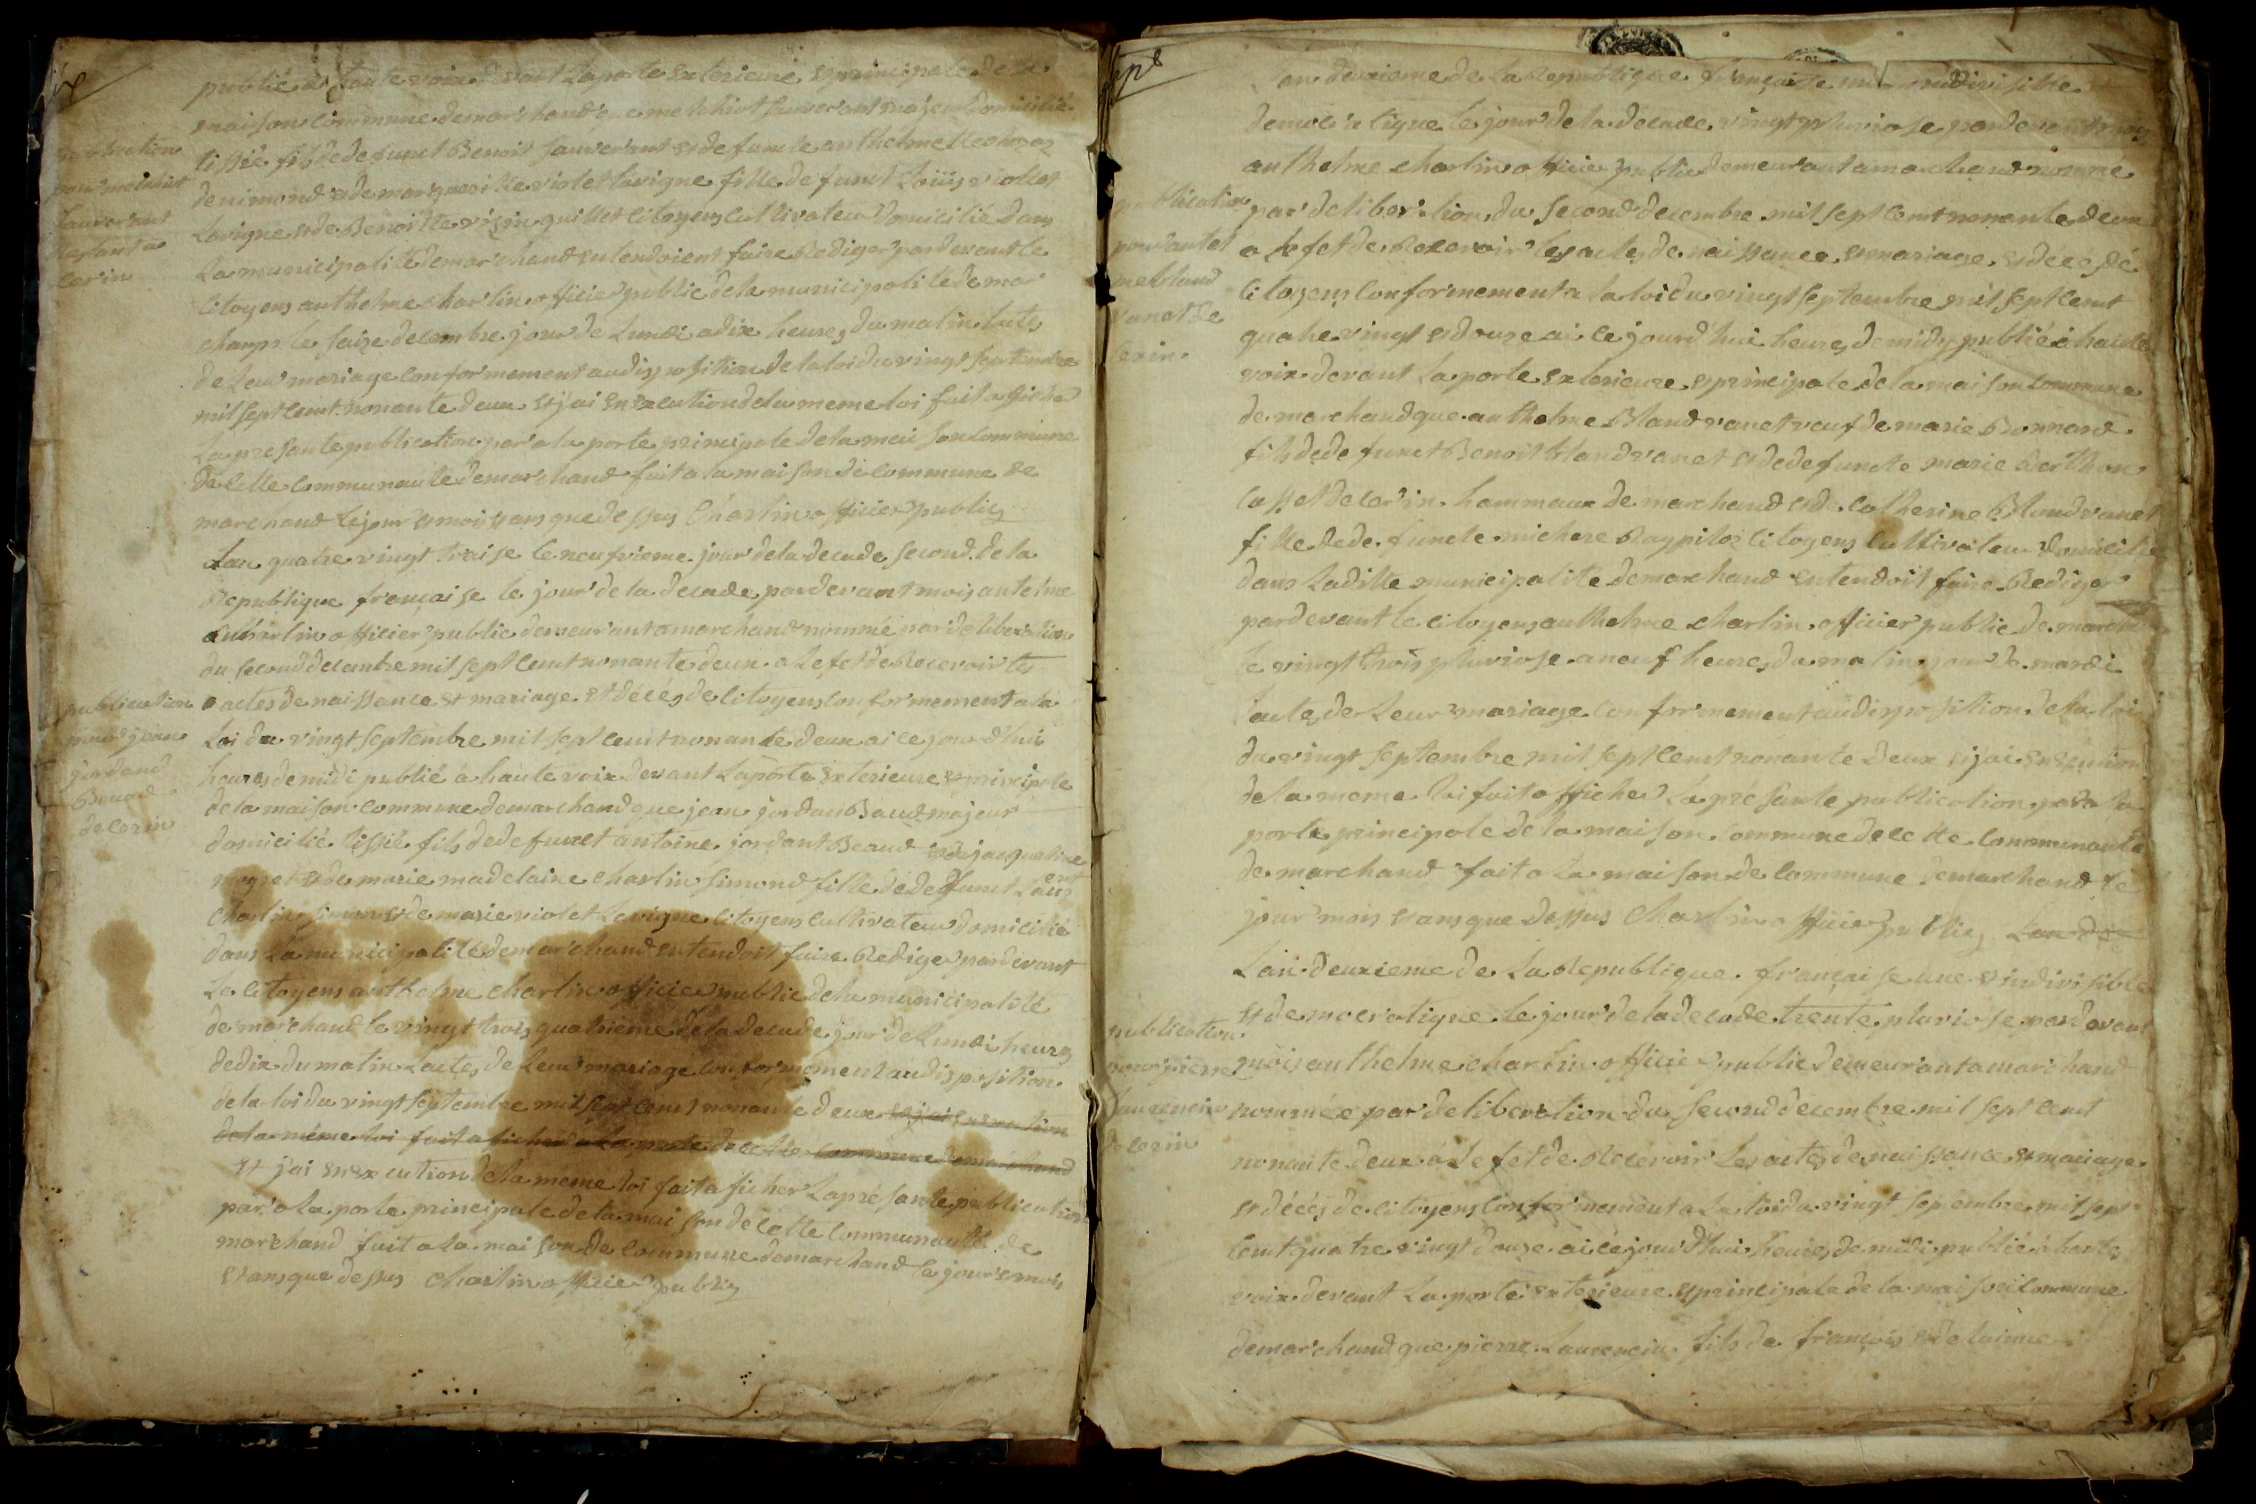 publié a haute voix devant la porte exterieure et principale de la
maison commune demarchand que melchiot sauverant majeur domicilié
tissié fils de defunct Benoit sauverant et de functe anthelme
de nimond et de margueritte violet lavigne fille de funct Louis violet
Lavigne et de Benoitte guillet citoyens cultivateur domicilié dans
La municipalité demarchand entendoient faire Rediger pardevant le
citoyens anthelme charlin officier public dela municipalité demar
champs le saize decembre jour de Lundi a dix heures du matin lactes
de Leur mariage conformement audisposition de la loi du vingt septembre
mil sept cent nonante deux et jai en execution dela meme loi fait affiche
La presante publication par a la porte principale dela maison commune
de celle communauté demarchand fait a la maison de commune de
marchand Le jour et mois et ans que dessus Charlin officier public
publication
pour melchiot
sauverant
cerin
Lan quatre vingt traise le neufvieme jour dela decade second de la
Republique française le jour de la decade pardevant mois antelme
charlin officier public demeurant a marchand nommé par deliberation
du second decembre mil sept cent nonante deux a lefet de Recevoir les
actes de naissance et mariage et décés de citoyens conformement a la
Loi du vingt septembre mil sept cent nonante deux ai ce jourdhui
heures de midi publié a haute voix devant La porte exterieure et principale
de la maison commune demarchand que jean jordan Baud majeur
domicilié tissié fils dedefunct antoine jordant Beaud et de jacqueline
et de marie madelaine charlin simond fille dedefunct Laurent
charlin simon et de marie violet Lavigne citoyens cultivateur domicilié
dans La municipalité demarchand entendoit faire Rediger pardevant
Le citoyens anthelme charlin officier public dela municipalité
de marchand le vingt trois quatrieme de la decade jour de Lundi heures
dedix du matin Lactes de Leur mariage conformement audisposition
de la loi du vingt septembre mil sept cent nonante deux et jai en execution
dela méme loi fait afficher a La porte de celle commune demarchand
et jai en execution dela méme loi fait aficher La présante publication
par a La porte principale de la maison de celle communauté de
marchand fait a La maison de commune demarchand le jour et mois
et ans que dessus Charlin officier public
publication
pour jean
jordand
Beaud
de cerin
Lan deuxieme de La Republique française une indivisible
democratique le jour de la decade vingt pluviose pardevant mois
anthelme charlin officier public demeurant a marchand nomme
par deliberation du second decembre mil sept cent nonante deux
a lefet de Recevoir les actes de naissance et mariage et decés de
citoyens conformement a la loi du vingt septembre mil sept cent
quatre vingt et douze ai ce jourd'hui heures de midy publié a haute
voix devant La porte exterieure et principale de la maison commune
de marchand que anthelme Bland vanet veuf de marie Bonnard
fils de defunct Benoit bland vanet et de defuncte marie Berthon
de cerin hammaux de marchand et de catherine Blandvanet
fille de de functe citoyens cultivateur domicilié
dans La ditte municipalité demarchand entendoit faire Rediger
pardevant le citoyens anthelme charlin officier public de marchand
le vingt trois pluviose a neuf heures du matin jour de mardi
Lactes de Leur mariage conformement audisposition de la loi
du vingt septembre mil sept cent nonante deux et jai en execution
de la meme loi fait afficher La présante publication par a la
porte principale de la maison commune de celle communauté
de marchand fait a La maison de commune demarchand le
jour mois et ans que dessus Charlin officier public Lan de
publication
pour antel
me bland
vanet de
cerin
Lan deuxieme de La Republique française une et indivisible
et democratique le jour dela decade trente pluviose pardevant
mois anthelme charlin officier public demeurant a marchand
nommée par deliberation du second decembre mil sept cent
nonante deux a Lefet de Recevoir Les actes de naissance et mariage
et décés de citoyens conformement a La loi du vingt septembre mil sept
cent quatre vingt douze ai ce jourdhui heures de midi publié a hautes
voix devant La porte exterieure et principale de la maison commune
demarchand que pierre Laurencin fils de françois et de laime
publication
pour pierre
Laurencin
de cerin